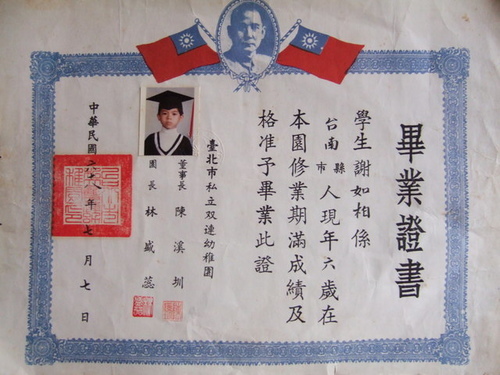 畢業證書
學生謝如相係
台南縣市人現年六歲在
本園修業期滿成績及
格准予畢業此證
臺北市私立双連幼稚園
董事長 陳溪圳
園長 林盛蕊
中華民國六十八年七月七日